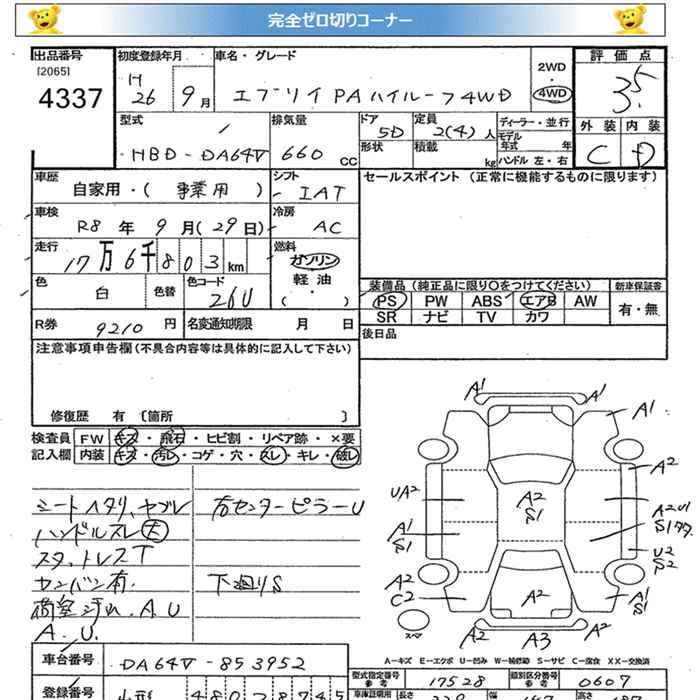 完全ゼロ切りコーナー
出品番号
[2065]
4337
初度登録年月
H
26 9月
車名・グレード
エブリイ PA ハイルーフ 4WD
2WD
・
4WD
評価点
3.5
外装 内装
C D
型式
HBD-DA64V
排気量
660 CC
ドア
5D
形状
定員
2(4)人
積載
kg
ディーラー・並行
モデル
年式 年
ハンドル 左・右
車歴
自家用・(事業用)
シフト
IAT
車検
R8年9月(29日)
冷房
AC
走行
17万6千803km
燃料
ガソリン
軽油
( )
色
白
色替
色コード
26U
R券
9210円
名変通知期限 月 日
セールスポイント(正常に機能するものに限ります)
装備品(純正品に限り〇をつけてください)
PS PW ABS エアB AW
SR ナビ TV カワ
新車保証書
有・無
後日品
注意事項申告欄(不具合内容等は具体的に記入して下さい)
修復歴 有〔箇所 〕
検査員
記入欄
FW キズ・飛石・ヒビ割・リペア跡・×要
内装 キズ・汚レ・コゲ・穴・スレ・キレ・破レ
シートヘタリ、ヤブレ
ハンドルスレ大
スタットレスT
カンバン有.
荷室汚れ.A.U
A.U.
右センターピラーU
下廻りS
A1
A1
A1
A2
UA2
A2
S1
A1
S1
U2
S2
A2
C2
A2
A1
S1
A2
A3
A2
スペア
A-キズ E-エクボ U-凹み W-補修跡 S-サビ C-腐食 XX-交換済
車台番号
DA64V-853952
型式指定番号
参考
17528
類別区分番号
参考
0607
登録番号
山形 480 8745
車庫証明用
長さ
幅
高さ